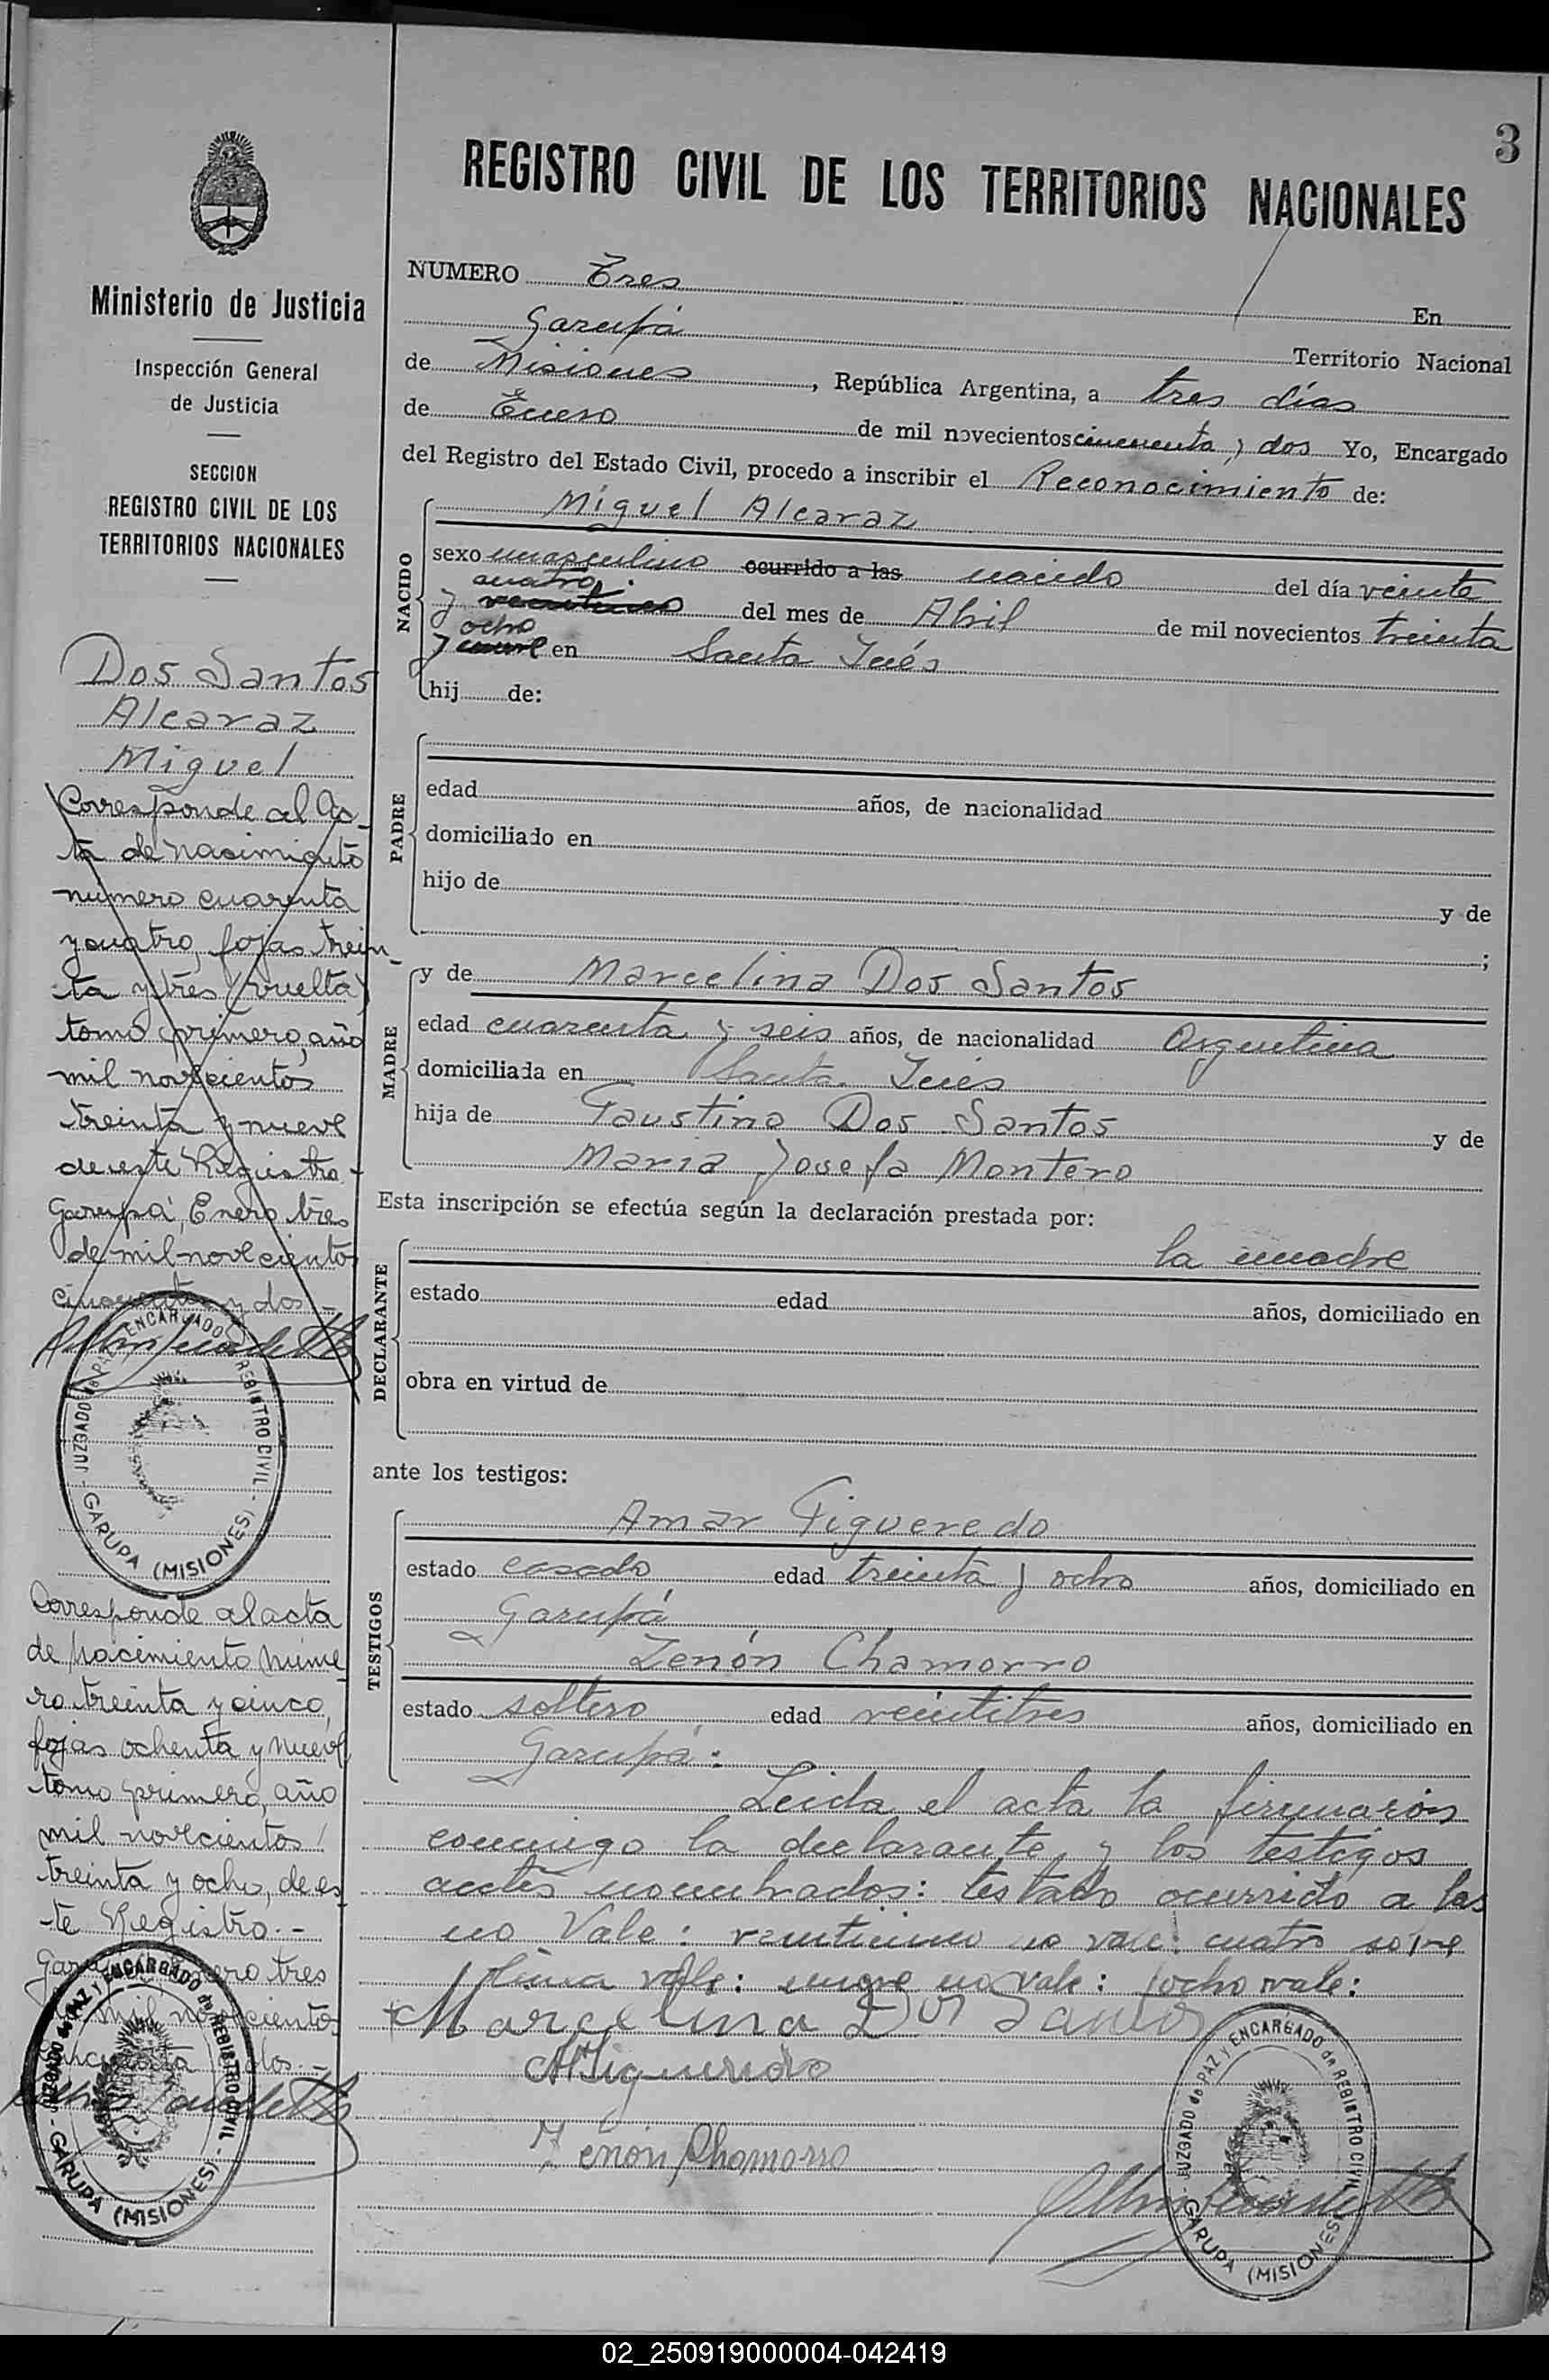 3
REGISTRO CIVIL DE LOS TERRITORIOS NACIONALES
Ministerio de Justicia
Inspección General
de Justicia
SECCION
REGISTRO CIVIL DE LOS
TERRITORIOS NACIONALES
Dos Santos
Alcaraz
Miguel
Corresponde al Ac-
ta de nacimiento
número cuarenta
y cuatro, fojas trein-
ta y tres (vuelta)
tomo primero, año
mil novecientos
treinta y nueve
de este Registro -
Garupá, Enero tres
de mil novecientos
cincuenta y dos -
JUZGADO de PAZ y ENCARGADO de REGISTRO CIVIL - GARUPA (MISIONES)
Corresponde al acta
de Nacimiento núme-
ro treinta y cinco,
fojas ochenta y nueve
tomo primero, año
mil novecientos
treinta y ocho, de es-
te Registro.-
Garupá Enero tres
mil novecientos
cincuenta y dos.-
JUZGADO de PAZ y ENCARGADO de REGISTRO CIVIL - GARUPA (MISIONES)
NUMERO Tres En
Garupá Territorio Nacional
de Misiones, República Argentina, a tres días
de Enero de mil novecientos cincuenta y dos Yo, Encargado
del Registro del Estado Civil, procedo a inscribir el Reconocimiento de:
NACIDO
Miguel Alcaraz
sexo masculino ocurrido a las nacido del día veinte
cuatro
y veintiuno del mes de Abril de mil novecientos treinta
ocho
y nueve en Santa Inés
hij de:
PADRE
edad años, de nacionalidad
domiciliado en
hijo de y de
;
MADRE
y de Marcelina Dos Santos
edad cuarenta y seis años, de nacionalidad Argentina
domiciliada en Santa Inés
hija de Faustino Dos Santos y de
Maria Josefa Montero
Esta inscripción se efectúa según la declaración prestada por:
DECLARANTE
la madre
estado edad años, domiciliado en
obra en virtud de
ante los testigos:
TESTIGOS
Amar Figueredo
estado casado edad treinta y ocho años, domiciliado en
Garupá
Zenón Chamorro
estado soltero edad veintitres años, domiciliado en
Garupá:
Leida el acta la firmaron
conmigo la declarante y los testigos
antes nombrados: testado ocurrido a las
no Vale: veintiuno no vale: cuatro sobre
linea vale: nueve no vale: ocho vale:
Marcelina Dos Santos
AFigueredo
Zenón Chamorro
JUZGADO de PAZ y ENCARGADO de REGISTRO CIVIL - GARUPA (MISIONES)
02_250919000004-042419